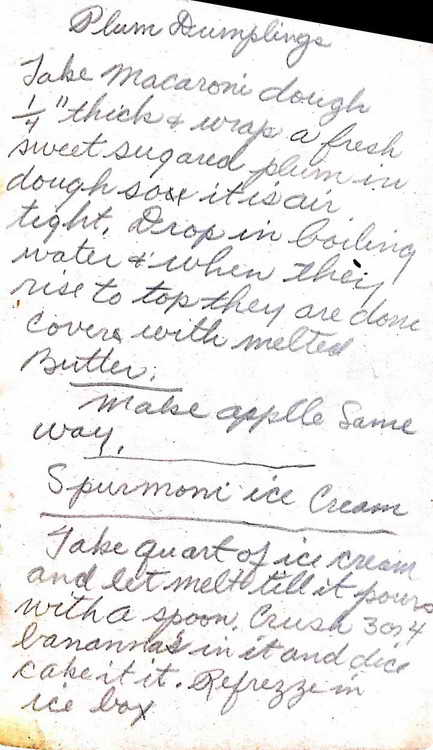 Plum Dumplings
Take Macaroni dough
1/4" thick & wrap a fresh
sweet sugared plum in
dough so it is air
tight. Drop in boiling
water & when they
rise to top they are done
Cover with melted
Butter.
Make applle Same
way.
Spurmoni ice Cream
Take quart of ice cream
and let melt till it pours
with a spoon. Crush 3 or 4
bananna's in it and dice
cake it it. Refrezze in
ice box